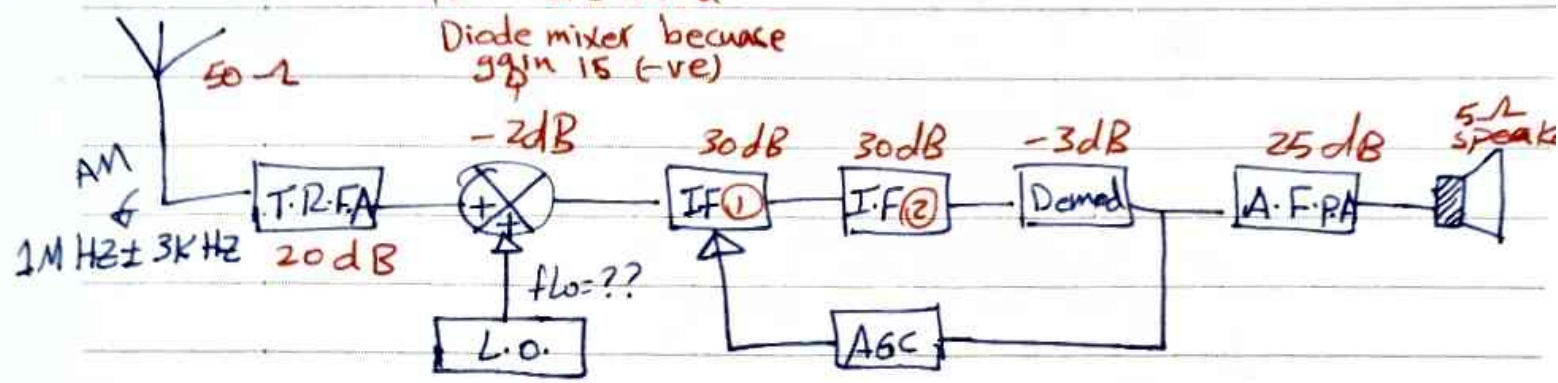 Diode mixer becuase
gain is (-ve)
50 Ω
-2dB
30dB
30dB
-3dB
25 dB
5Ω
speake
AM
T.R.F.A
+
+
I.F ①
I.F ②
Demod
A.F.P.A
1M HZ ± 3K HZ
20 dB
fLo=??
L.O.
AGC